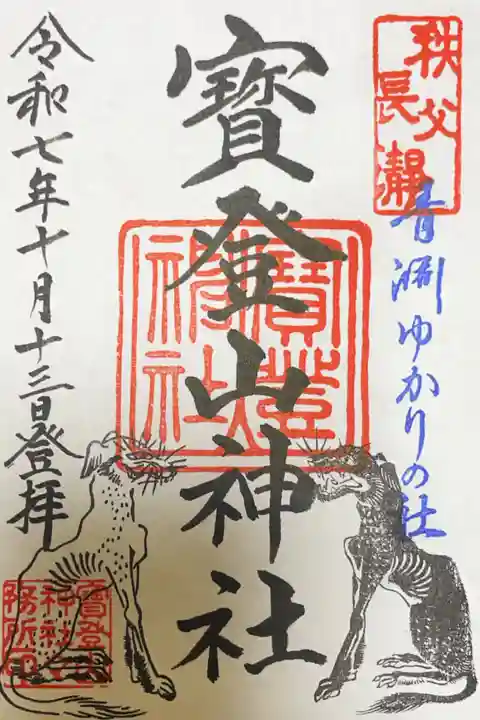 秩父
長瀞
青淵ゆかりの社
寳登山神社
寳登
神社
令和七年十月十三日登拝
寳登山
神社社
務所印